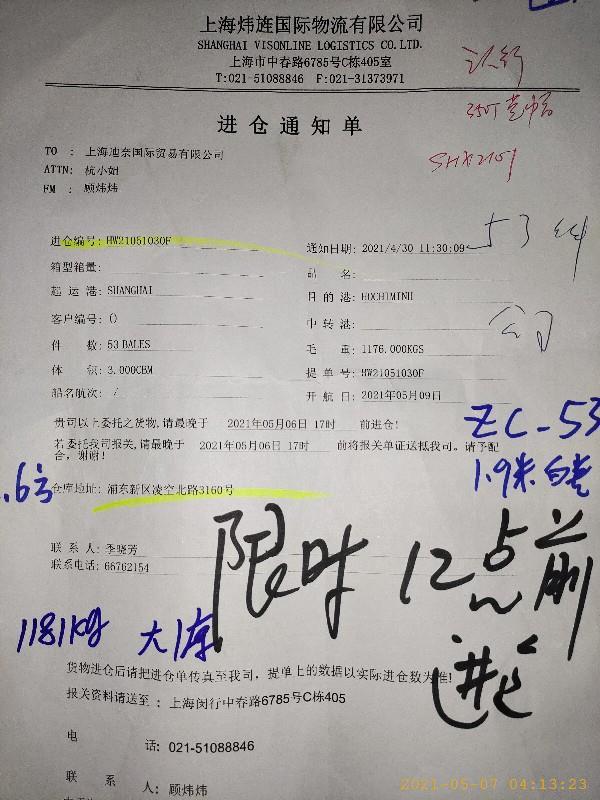 上海炜旌国际物流有限公司
SHANGHAI VISONLINE LOGISTICS CO.LTD.
上海市中春路6785号C栋405室
T:021-51088846 F:021-31373971
进仓通知单
TO : 上海迪奈国际贸易有限公司
ATTN: 杭小姐
FM : 顾炜炜
SHX2151
进仓编号: HW21051030F
通知日期: 2021/4/30 11:30:09
53件
箱型箱量:
品 名:
起 运 港: SHANGHAI
目 的 港: HOCHIMINH
客户编号: ()
中 转 港:
公司
件 数: 53 BALES
毛 重: 1176.000KGS
体 积: 3.000CBM
提 单 号: HW21051030F
船名航次: /
开 航 日: 2021年05月09日
贵司以上委托之货物,请最晚于 2021年05月06日 17时 前进仓!
若委托我司报关,请最晚于 2021年05月06日 17时 前将报关单证送抵我司。请予配
合,谢谢!
ZC-53
1.9米
.6方
仓库地址: 浦东新区凌空北路3160号
限时 12点前
进仓
联 系 人: 季晓芳
联系电话: 66762154
1181kg 大库
货物进仓后请把进仓单传真至我司, 提单上的数据以实际进仓数为准!
报关资料请送至: 上海闵行中春路6785号C栋405
电 话: 021-51088846
联 系 人: 顾炜炜
2021-05-07 04:13:23